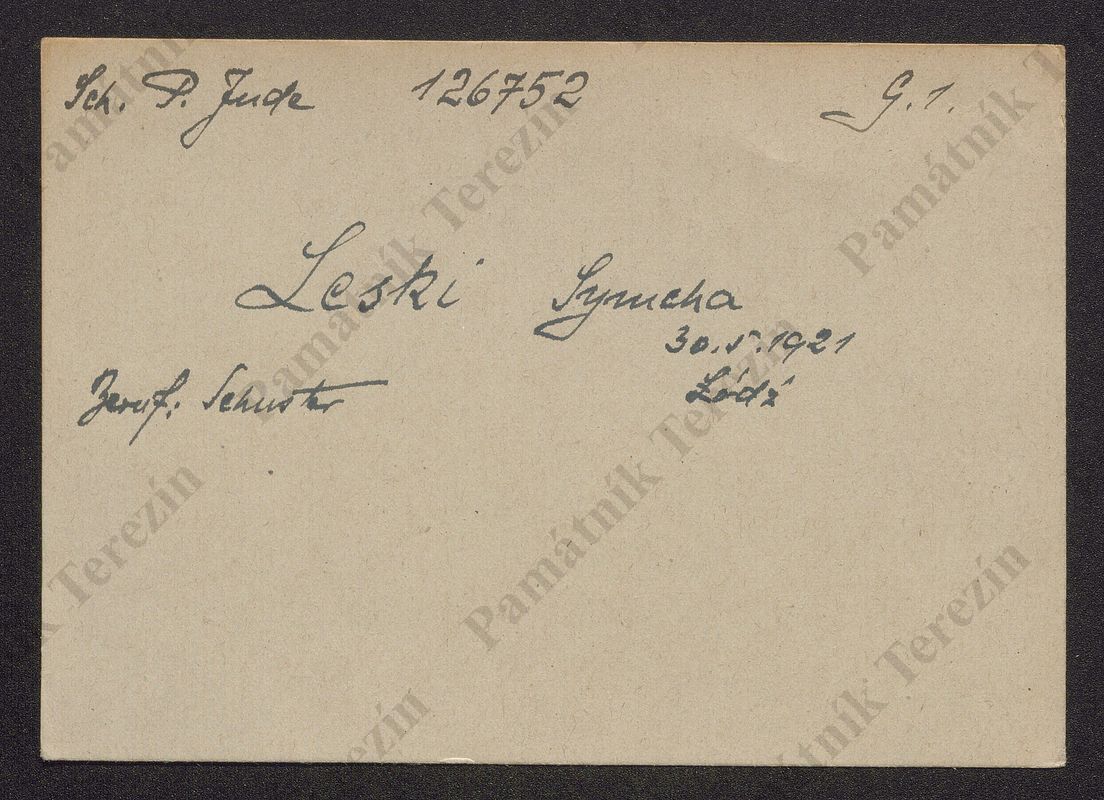 Sch. P. Jude 126752 G.1.
Leski Symcha
30.5.1921
Beruf: Schuster Łódź
Památník Terezín
Památník Terezín
Památník Terezín
Památník Terezín
Památník Terezín